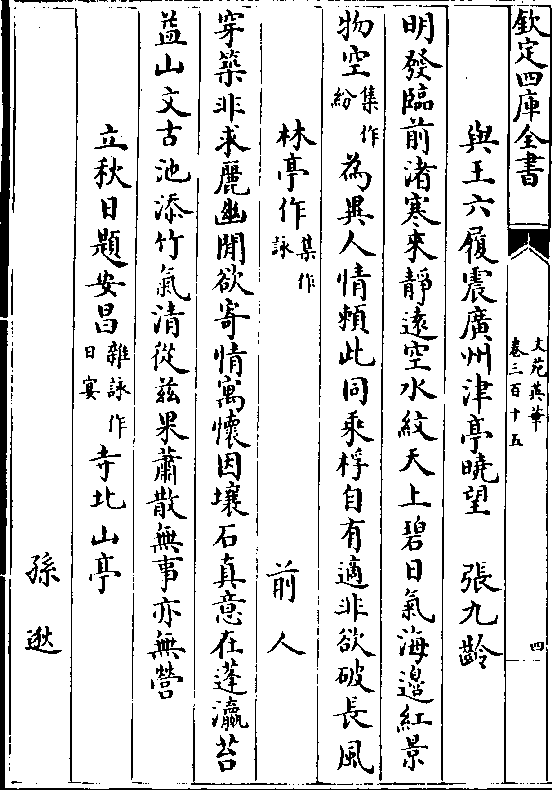 欽定四庫全書
文苑英華
卷三百十五
四
與王六履震廣州津亭曉望　張九齡
明發臨前渚寒來靜遠空水紋天上碧日氣海邉紅景
物空集作紛為異人情頼此同乘桴自有適非欲破長風
林亭作集作詠　前人
穿築非求麗幽閒欲寄情寓懷因壤石真意在蓬瀛苔
益山文古池添竹氣清從兹果蕭散無事亦無營
立秋日題安昌雜詠作日宴寺北山亭
孫逖